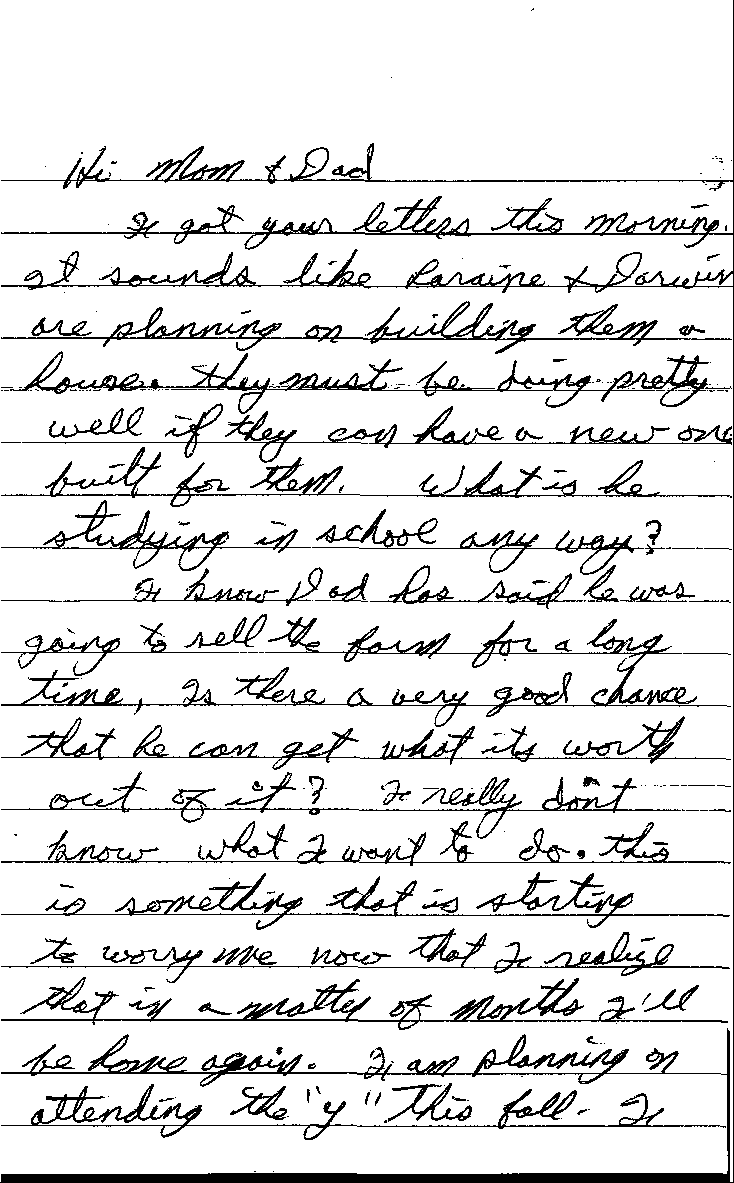 Hi Mom & Dad
I got your letters this morning.
It sounds like Laraine & Darwin
are planning on building them a
house. they must be doing pretty
well if they can have a new one
built for them. What is he
studying in school any way?
I know Dad has said he was
going to sell the farm for a long
time, Is there a very good chance
that he can get what its worth
out of it? I really don't
know what I want to do. this
is something that is starting
to worry me now that I realize
that in a matter of months I'll
be home again. I am planning on
attending the "y" This fall - I